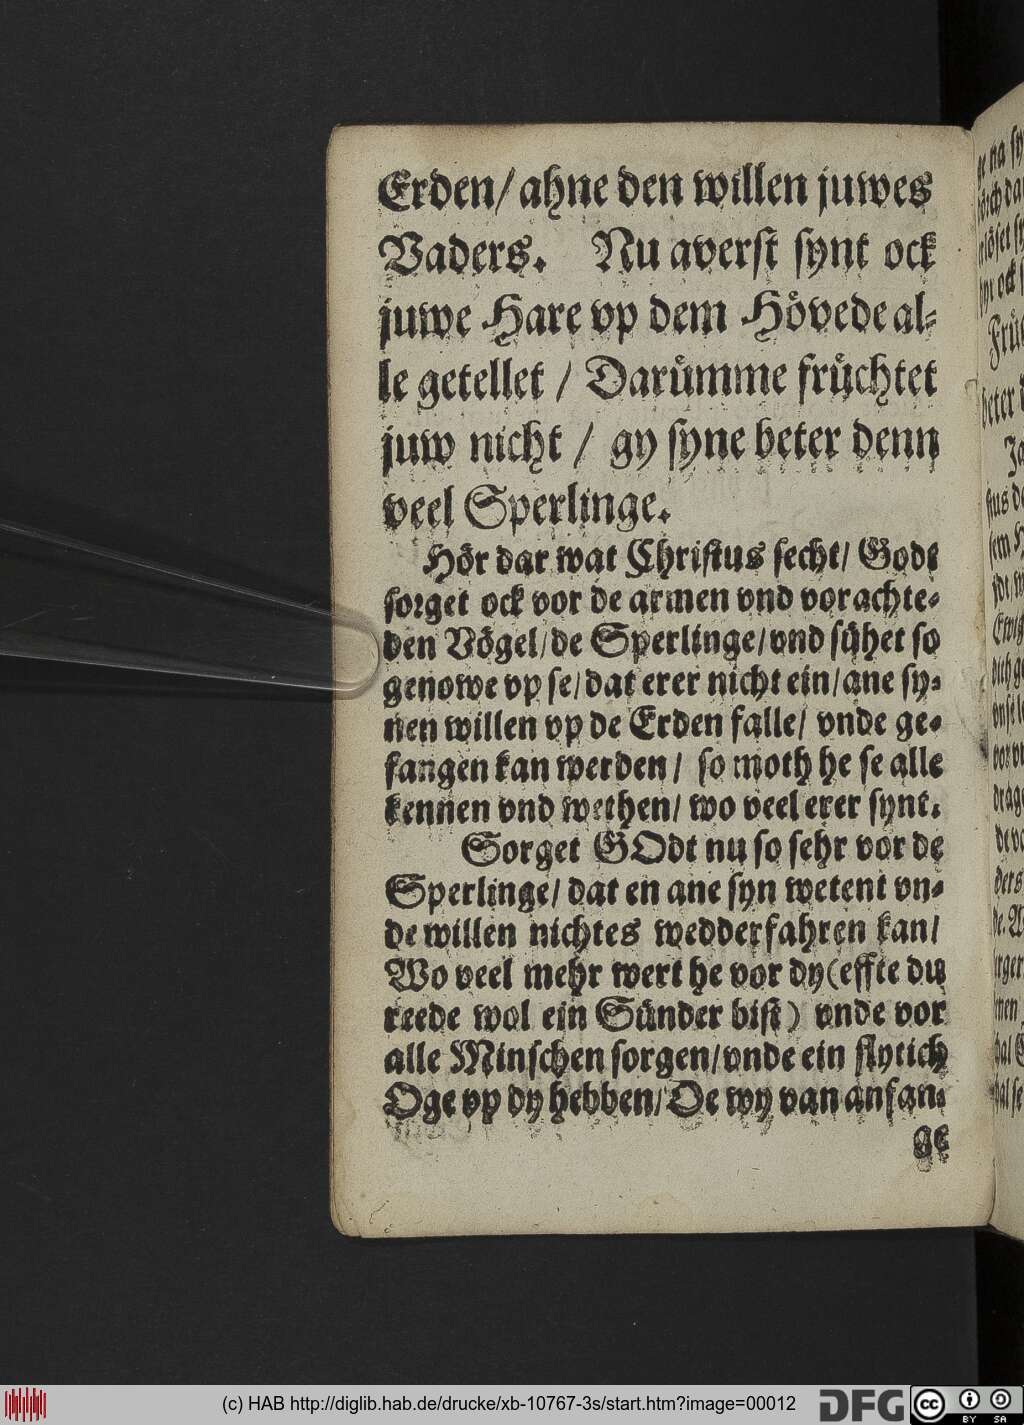 Erden/ ahne den willen juwes
Vaders. Nu averst synt ock
juwe Hare vp dem Hövede al-
le getellet / Darümme früchtet
juw nicht / gy syne beter denn
veel Sperlinge.
Hör dar wat Christus secht/ Godt
sorget ock vor de armen vnd vorachte-
den Vögel/ de Sperlinge/ vnd sühet so
genowe vp se/ dat erer nicht ein/ ane sy-
nen willen vp de Erden falle/ vnde ge-
fangen kan werden / so moth he se alle
kennen vnd wethen/ wo veel erer synt.
Sorget GOdt nu so sehr vor de
Sperlinge/ dat en ane syn wetent vn-
de willen nichtes wedderfahren kan/
Wo veel mehr wert he vor dy (effte du
reede wol ein Sünder bist) vnde vor
alle Minschen sorgen/ vnde ein flytich
Oge vp dy hebben/ De wy van anfan-
ge
(c) HAB http://diglib.hab.de/drucke/xb-10767-3s/start.htm?image=00012
DFG
cc
BY SA